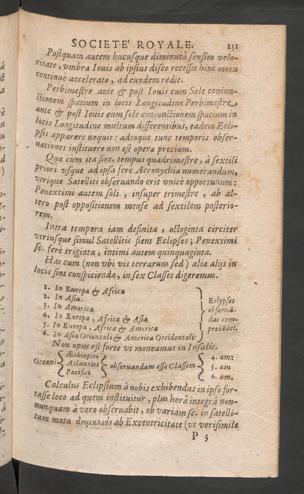 SOCIETE' ROYALE. 231
Postquam autem hucusque diminutâ sensim velo-
citate, vmbra Iouis ab ipsius disco recessit hinc motu
continue accelerato, ad eundem redit.
Perbimestre ante & post Iouis cum Sole coniun-
ctionem spatium in locis Longitudine Perbimestre
ante & post Iouis cum sole coniunctionem spatium in
locis Longitudine multum differentibus, eadem Ecli-
psis apparere neque: adeoque tunc temporis obser-
uationes instituere non est opere precium.
Que cum ita sint, tempus quadrimestre, à sextili
priori vsque ad ipsa fere Acronychia numerandum,
vtrique Satelliti obseruando erit vnicè opportunum;
Penextimi autem soli, insuper trimestre, ab al-
tero post oppositionem mense ad sextilem posterio-
rem.
Intra tempora iam definita, octoginta circiter
vtriusque simul Satellitij fient Eclipses; Penextimi
sc. ferè triginta, intimi autem quinquaginta.
Has cum (non vbi vis terrarum sed) alia alijs in
locis sint conspiciendæ, in sex Classes digeremus.
1. In Europa & Africa
2. In Asia.
3. In America
4. In Europa, Africa, & Asia
5. In Europa, Africa & America
6. In Asia Orientali & America Occidentali
Eclypses
obseruā-
das com-
prehēdet.
Non opus est forte vt moneamus in Insulis.
Oceani Æthiopici Atlantici Pacifici obseruandam esse Classem 4. am; 5. am 6. am,
Calculus Eclipsium à nobis exhibendus in ipso for-
tasse loco ad quem instituitur, plus horâ integrâ non-
nunquam à vero obseruabit, ob variam sc. in satelli-
tum motu ἀνωμαλίαν ab Excentricitate (vt verisimile
P 3